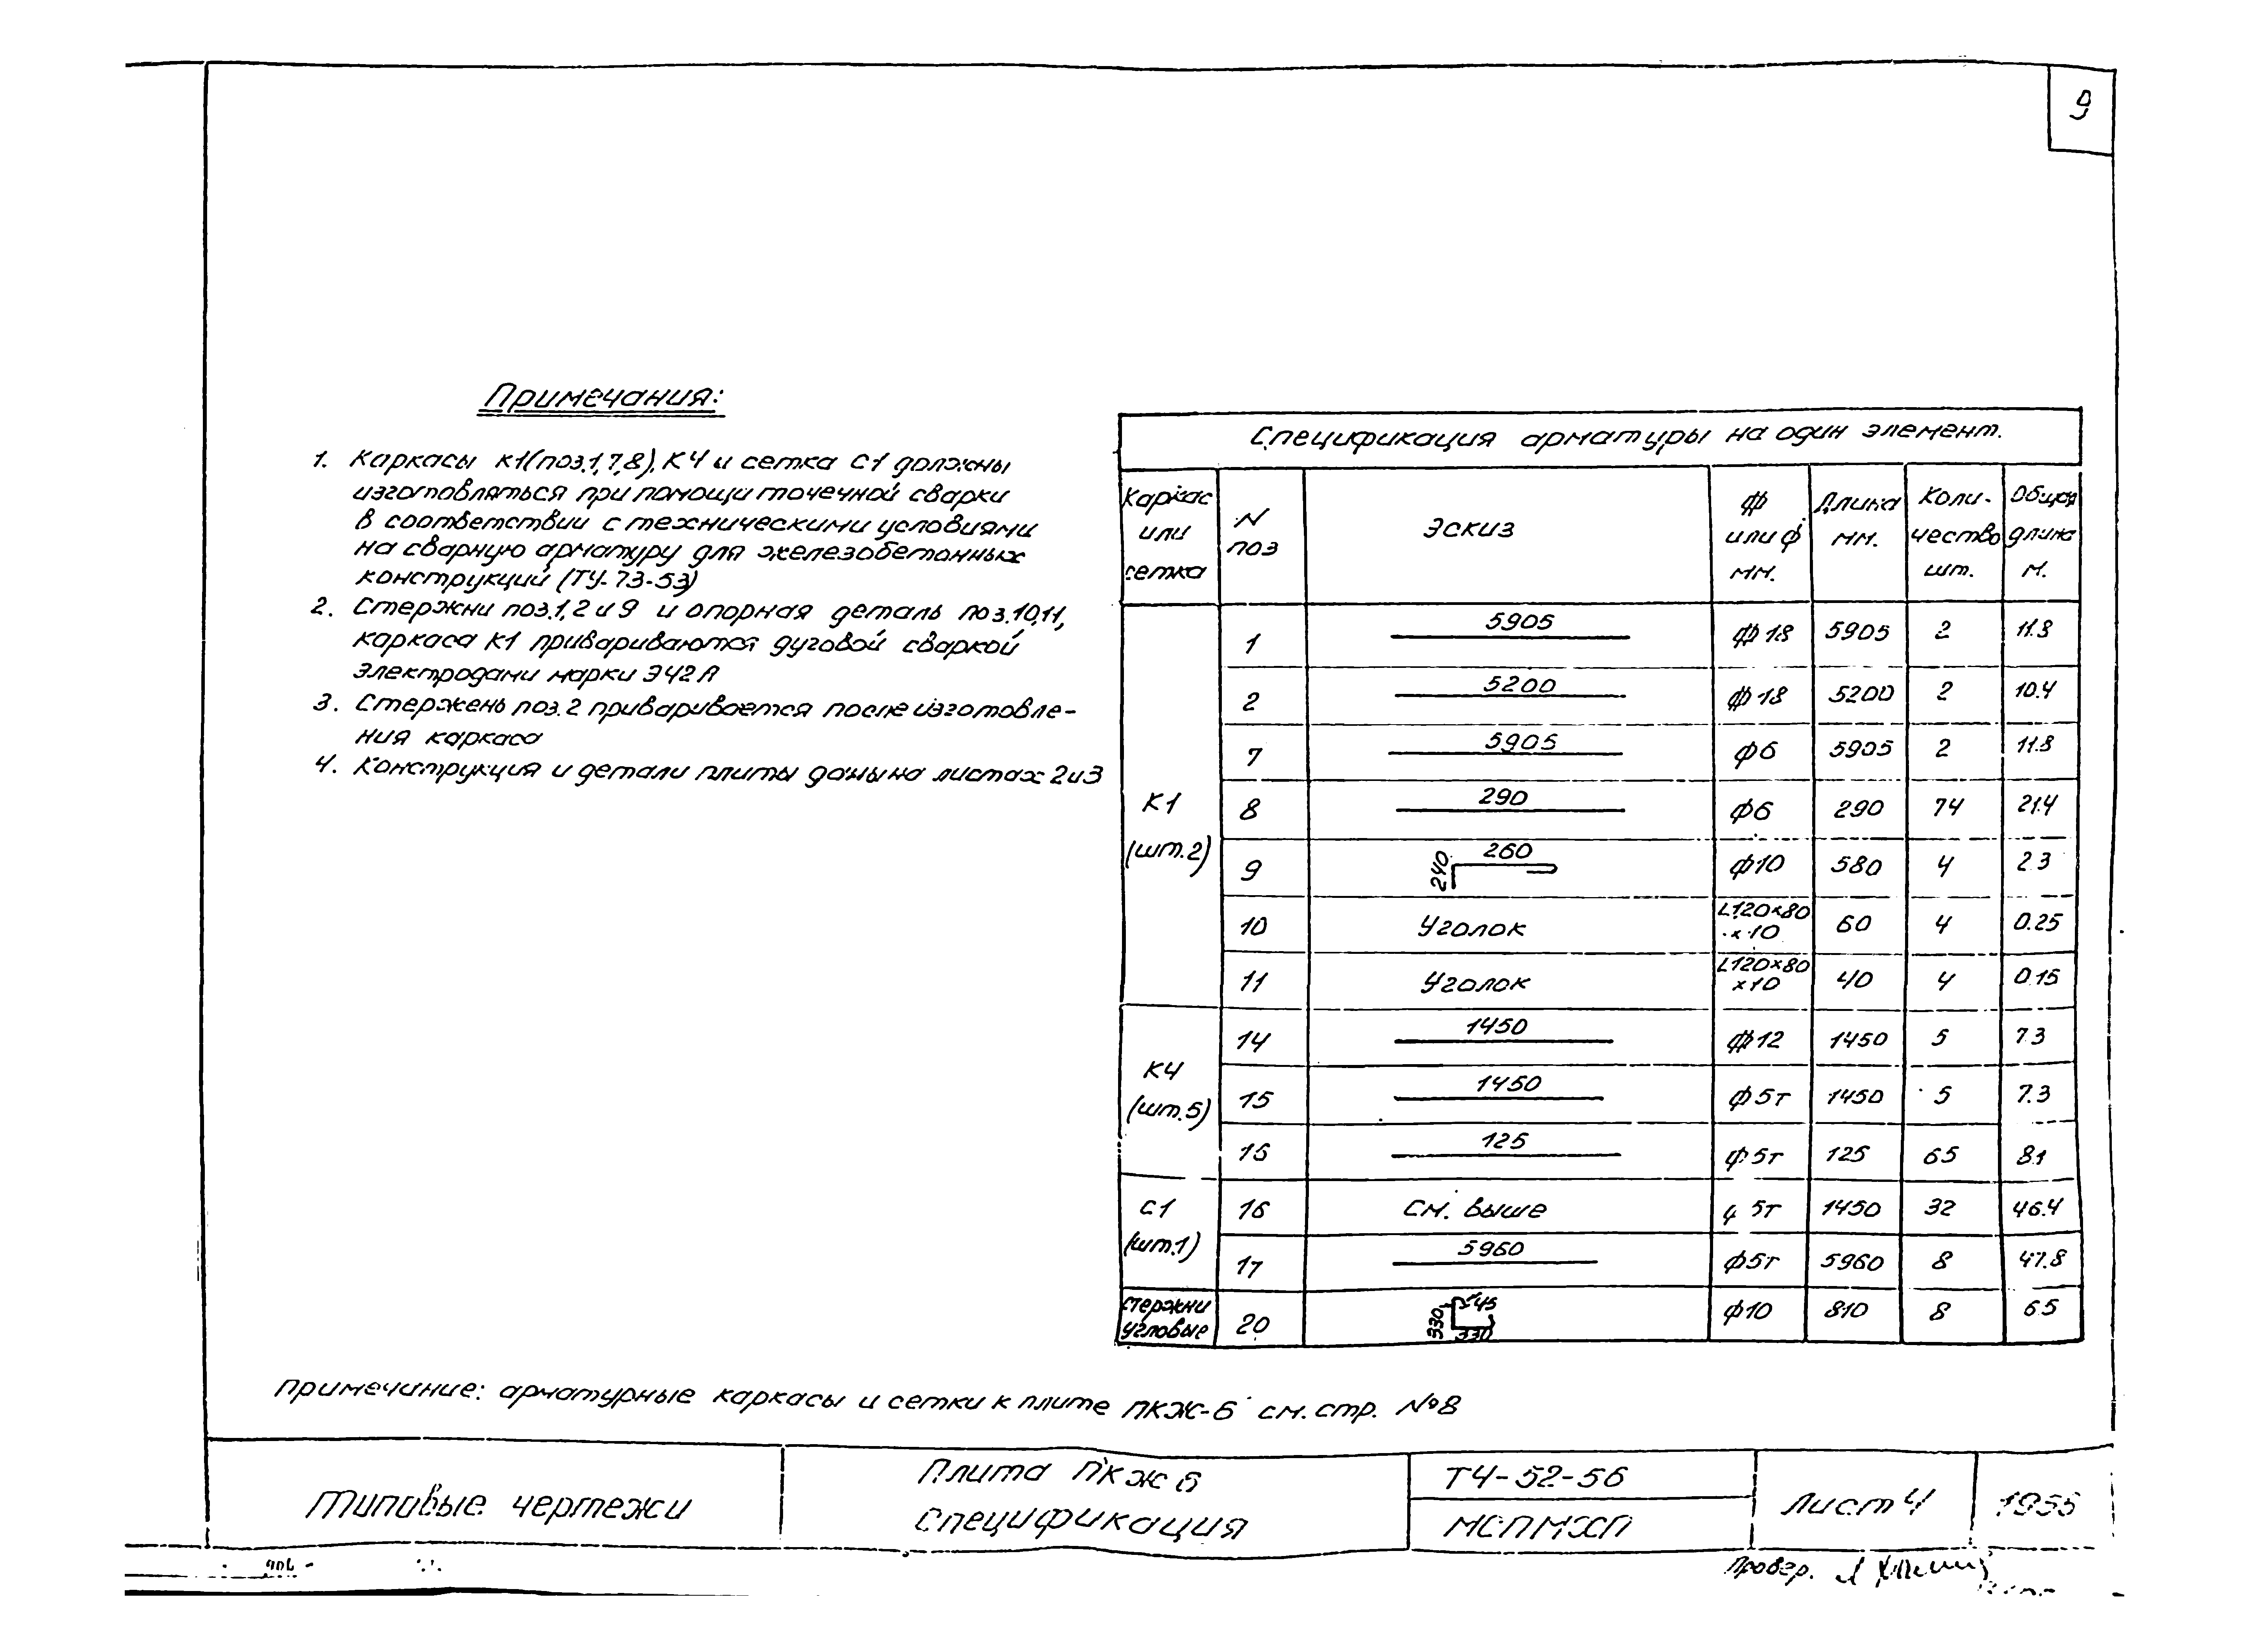 9
Примечания:
1. Каркасы К1(поз.1,7,8), К4 и сетка С1 должны
изготовляться при помощи точечной сварки
в соответствии с техническими условиями
на сварную арматуру для железобетонных
конструкций (ТУ-73-53)
2. Стержни поз.1,2 и 9 и опорная деталь поз.10,11,
каркаса К1 привариваются дуговой сваркой
электродами марки Э42А
3. Стержень поз.2 приваривается после изготовле-
ния каркаса
4. Конструкция и детали плиты даны на листах 2и3
Спецификация арматуры на один элемент.
Каркас или сетка N поз Эскиз ф или ф мм. Длина мм. Коли-чество шт. Общая длина м.
К1 (шт.2)
1 5905 ф18 5905 2 11.8
2 5200 ф18 5200 2 10.4
7 5905 ф6 5905 2 11.8
8 290 ф6 290 74 21.4
9 240 260 ф10 580 4 2.3
10 Уголок L120×80×10 60 4 0.25
11 Уголок L120×80×10 40 4 0.15
К4 (шт.5)
14 1450 ф12 1450 5 7.3
15 1450 ф5т 1450 5 7.3
16 125 ф5т 125 65 8.1
С1 (шт.1)
16 См. выше 5т 1450 32 46.4
17 5960 ф5т 5960 8 47.8
стержни угловые 20 330 45 330 ф10 810 8 6.5
Примечание: арматурные каркасы и сетки к плите ПКЖ-6 см. стр. №8
Типовые чертежи
Плита ПКЖ6
Спецификация
ТЧ-52-56
МСПМХП
Лист 4
1955
Провер.